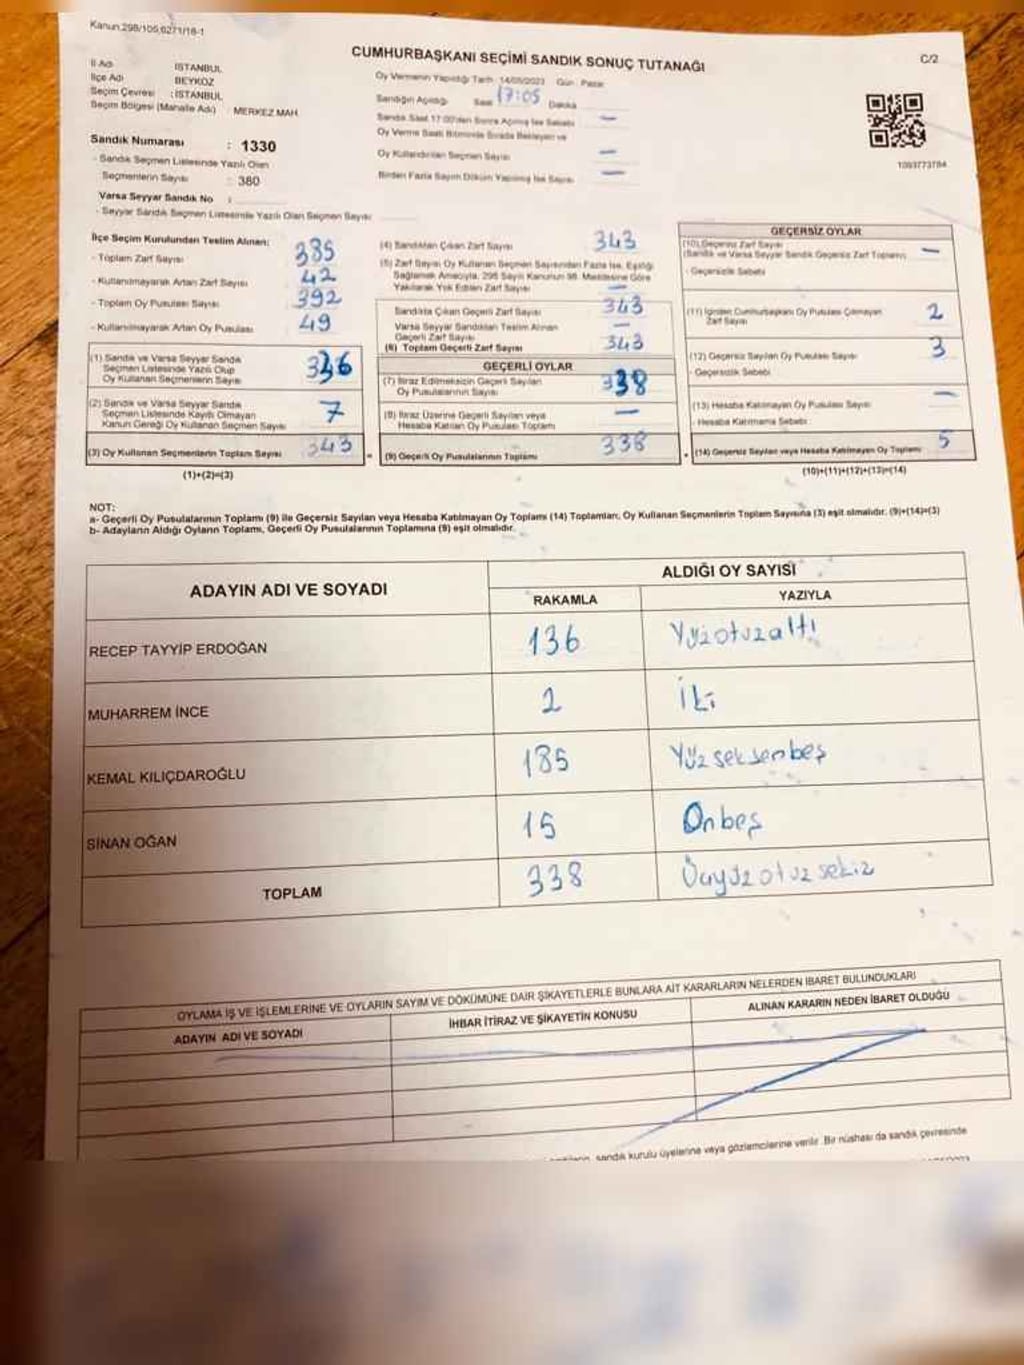 Kanun.298/105,6271/16-1
CUMHURBAŞKANI SEÇİMİ SANDIK SONUÇ TUTANAĞI
C/2
İl Adı İSTANBUL
İlçe Adı BEYKOZ
Seçim Çevresi : İSTANBUL
Seçim Bölgesi (Mahalle Adı) : MERKEZ MAH.
Oy Vermenin Yapıldığı Tarih 14/05/2023 Gün Pazar
Sandığın Açıldığı Saat 17:05 Dakika
Sandık Saat 17:00'den Sonra Açılmış İse Sebebi —
Oy Verme Saati Bitiminde Sırada Bekleyen ve
Oy Kullandırılan Seçmen Sayısı —
Birden Fazla Sayım Döküm Yapılmış İse Sayısı —
1093773784
Sandık Numarası : 1330
- Sandık Seçmen Listesinde Yazılı Olan
Seçmenlerin Sayısı : 380
Varsa Seyyar Sandık No :
- Seyyar Sandık Seçmen Listesinde Yazılı Olan Seçmen Sayısı
İlçe Seçim Kurulundan Teslim Alınan:
- Toplam Zarf Sayısı 385
- Kullanılmayarak Artan Zarf Sayısı 42
- Toplam Oy Pusulası Sayısı 392
- Kullanılmayarak Artan Oy Pusulası 49
(1) Sandık ve Varsa Seyyar Sandık
Seçmen Listesinde Yazılı Olup
Oy Kullanan Seçmenlerin Sayısı 336
(2) Sandık ve Varsa Seyyar Sandık
Seçmen Listesinde Kayıtlı Olmayan
Kanun Gereği Oy Kullanan Seçmen Sayısı 7
(3) Oy Kullanan Seçmenlerin Toplam Sayısı 343
(1)+(2)=(3)
(4) Sandıktan Çıkan Zarf Sayısı 343
(5) Zarf Sayısı Oy Kullanan Seçmen Sayısından Fazla İse, Eşitliği
Sağlamak Amacıyla, 298 Sayılı Kanunun 98. Maddesine Göre
Yakılarak Yok Edilen Zarf Sayısı —
Sandıkta Çıkan Geçerli Zarf Sayısı 343
Varsa Seyyar Sandıktan Teslim Alınan
Geçerli Zarf Sayısı —
(6) Toplam Geçerli Zarf Sayısı 343
GEÇERLİ OYLAR
(7) İtiraz Edilmeksizin Geçerli Sayılan
Oy Pusulalarının Sayısı 338
(8) İtiraz Üzerine Geçerli Sayılan veya
Hesaba Katılan Oy Pusulası Toplamı —
(9) Geçerli Oy Pusulalarının Toplamı 338
GEÇERSİZ OYLAR
(10) Geçersiz Zarf Sayısı
(Sandık ve Varsa Seyyar Sandık Geçersiz Zarf Toplamı) —
- Geçersizlik Sebebi
(11) İçinden Cumhurbaşkanı Oy Pusulası Çıkmayan
Zarf Sayısı 2
(12) Geçersiz Sayılan Oy Pusulası Sayısı 3
- Geçersizlik Sebebi
(13) Hesaba Katılmayan Oy Pusulası Sayısı —
- Hesaba Katılmama Sebebi
(14) Geçersiz Sayılan veya Hesaba Katılmayan Oy Toplamı 5
(10)+(11)+(12)+(13)=(14)
NOT:
a- Geçerli Oy Pusulalarının Toplamı (9) ile Geçersiz Sayılan veya Hesaba Katılmayan Oy Toplamı (14) Toplamları, Oy Kullanan Seçmenlerin Toplam Sayısına (3) eşit olmalıdır. (9)+(14)=(3)
b- Adayların Aldığı Oyların Toplamı, Geçerli Oy Pusulalarının Toplamına (9) eşit olmalıdır.
ADAYIN ADI VE SOYADI
ALDIĞI OY SAYISI
RAKAMLA YAZIYLA
RECEP TAYYİP ERDOĞAN 136 Yüzotuzaltı
MUHARREM İNCE 2 İki
KEMAL KILIÇDAROĞLU 185 Yüzseksenbeş
SİNAN OĞAN 15 Onbeş
TOPLAM 338 Üçyüzotuzsekiz
OYLAMA İŞ VE İŞLEMLERİNE VE OYLARIN SAYIM VE DÖKÜMÜNE DAİR ŞİKAYETLERLE BUNLARA AİT KARARLARIN NELERDEN İBARET BULUNDUKLARI
ADAYIN ADI VE SOYADI İHBAR İTİRAZ VE ŞİKAYETİN KONUSU ALINAN KARARIN NEDEN İBARET OLDUĞU
sandık kurulu üyelerine veya gözlemcilerine verilir. Bir nüshası da sandık çevresinde